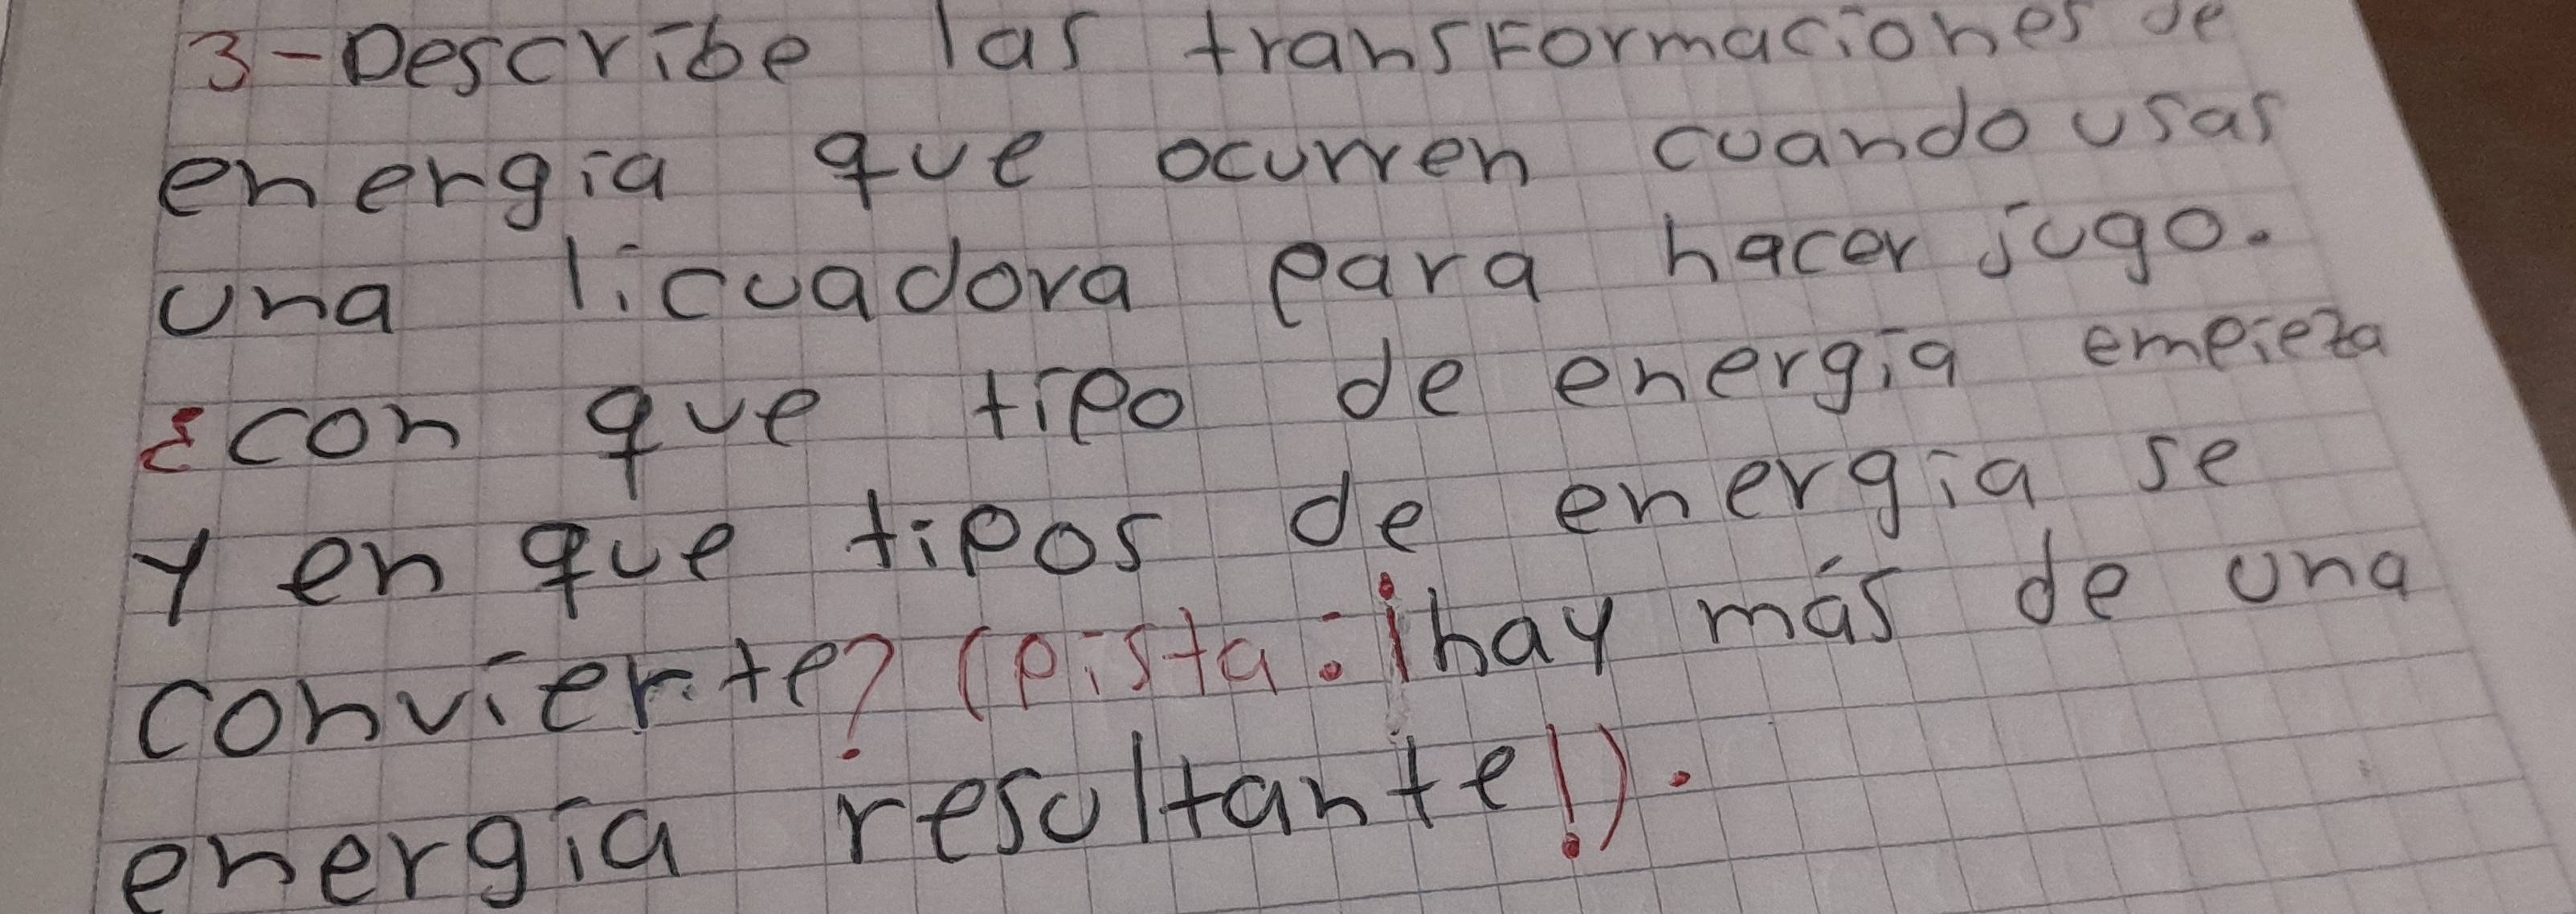 3-Describe las transformaciones de
energia que ocurren cuando usas
una licuadora para hacer jugo.
¿con que tipo de energia empieza
y en que tipos de energia se
convierte? (pista: ¡hay más de una
energia resultante!).